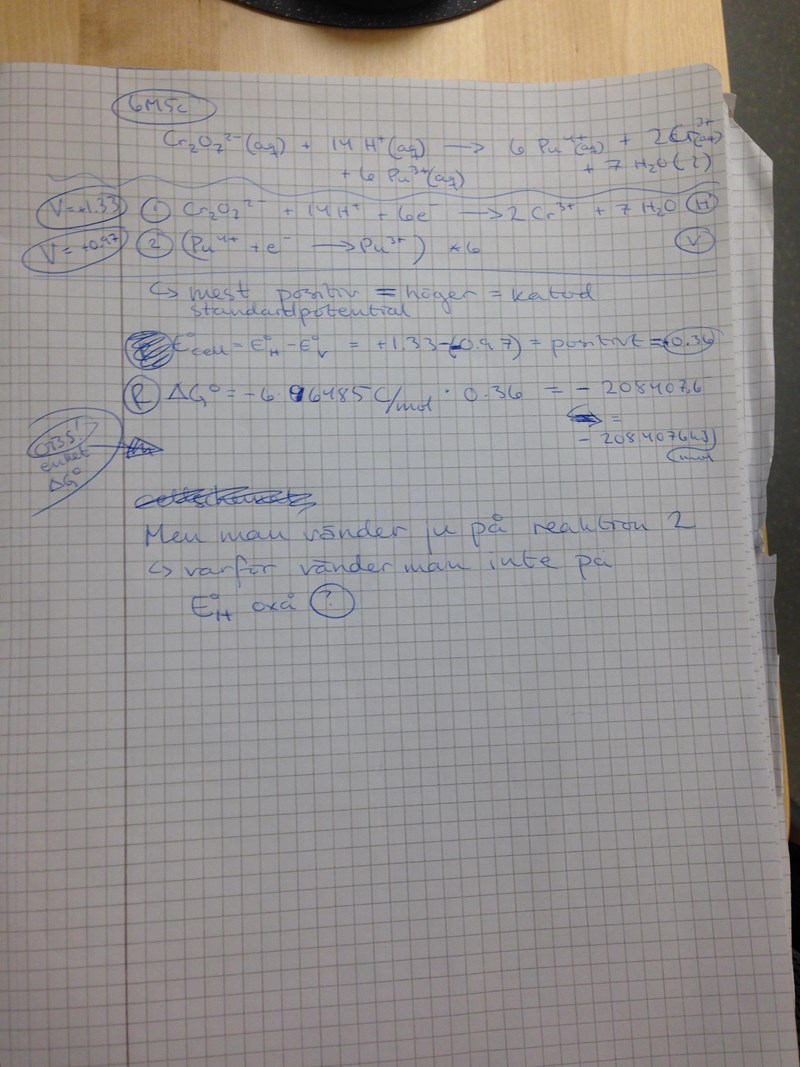 6M5c
Cr₂O₇²⁻(aq) + 14 H⁺(aq) → 6 Pu⁴⁺(aq) + 2Cr³⁺(aq)
+ 6 Pu³⁺(aq) + 7 H₂O(l)
V=+1.33 ① Cr₂O₇²⁻ + 14H⁺ + 6e⁻ → 2 Cr³⁺ + 7 H₂O H
V=+0.97 ② (Pu⁴⁺ + e⁻ → Pu³⁺) ×6 V
↳ mest positiv = höger = katod
standardpotential
E°cell = E°H − E°V = +1.33−(0.97) = positivt = +0.36
R ΔG° = −6·96485C/mol · 0.36 = −208407,6
=
OBS!
enhet
ΔG°
− 208407,6 kJ/mol
Men man vänder ju på reaktion 2
↳ varför vänder man inte på
E°H oxå ?